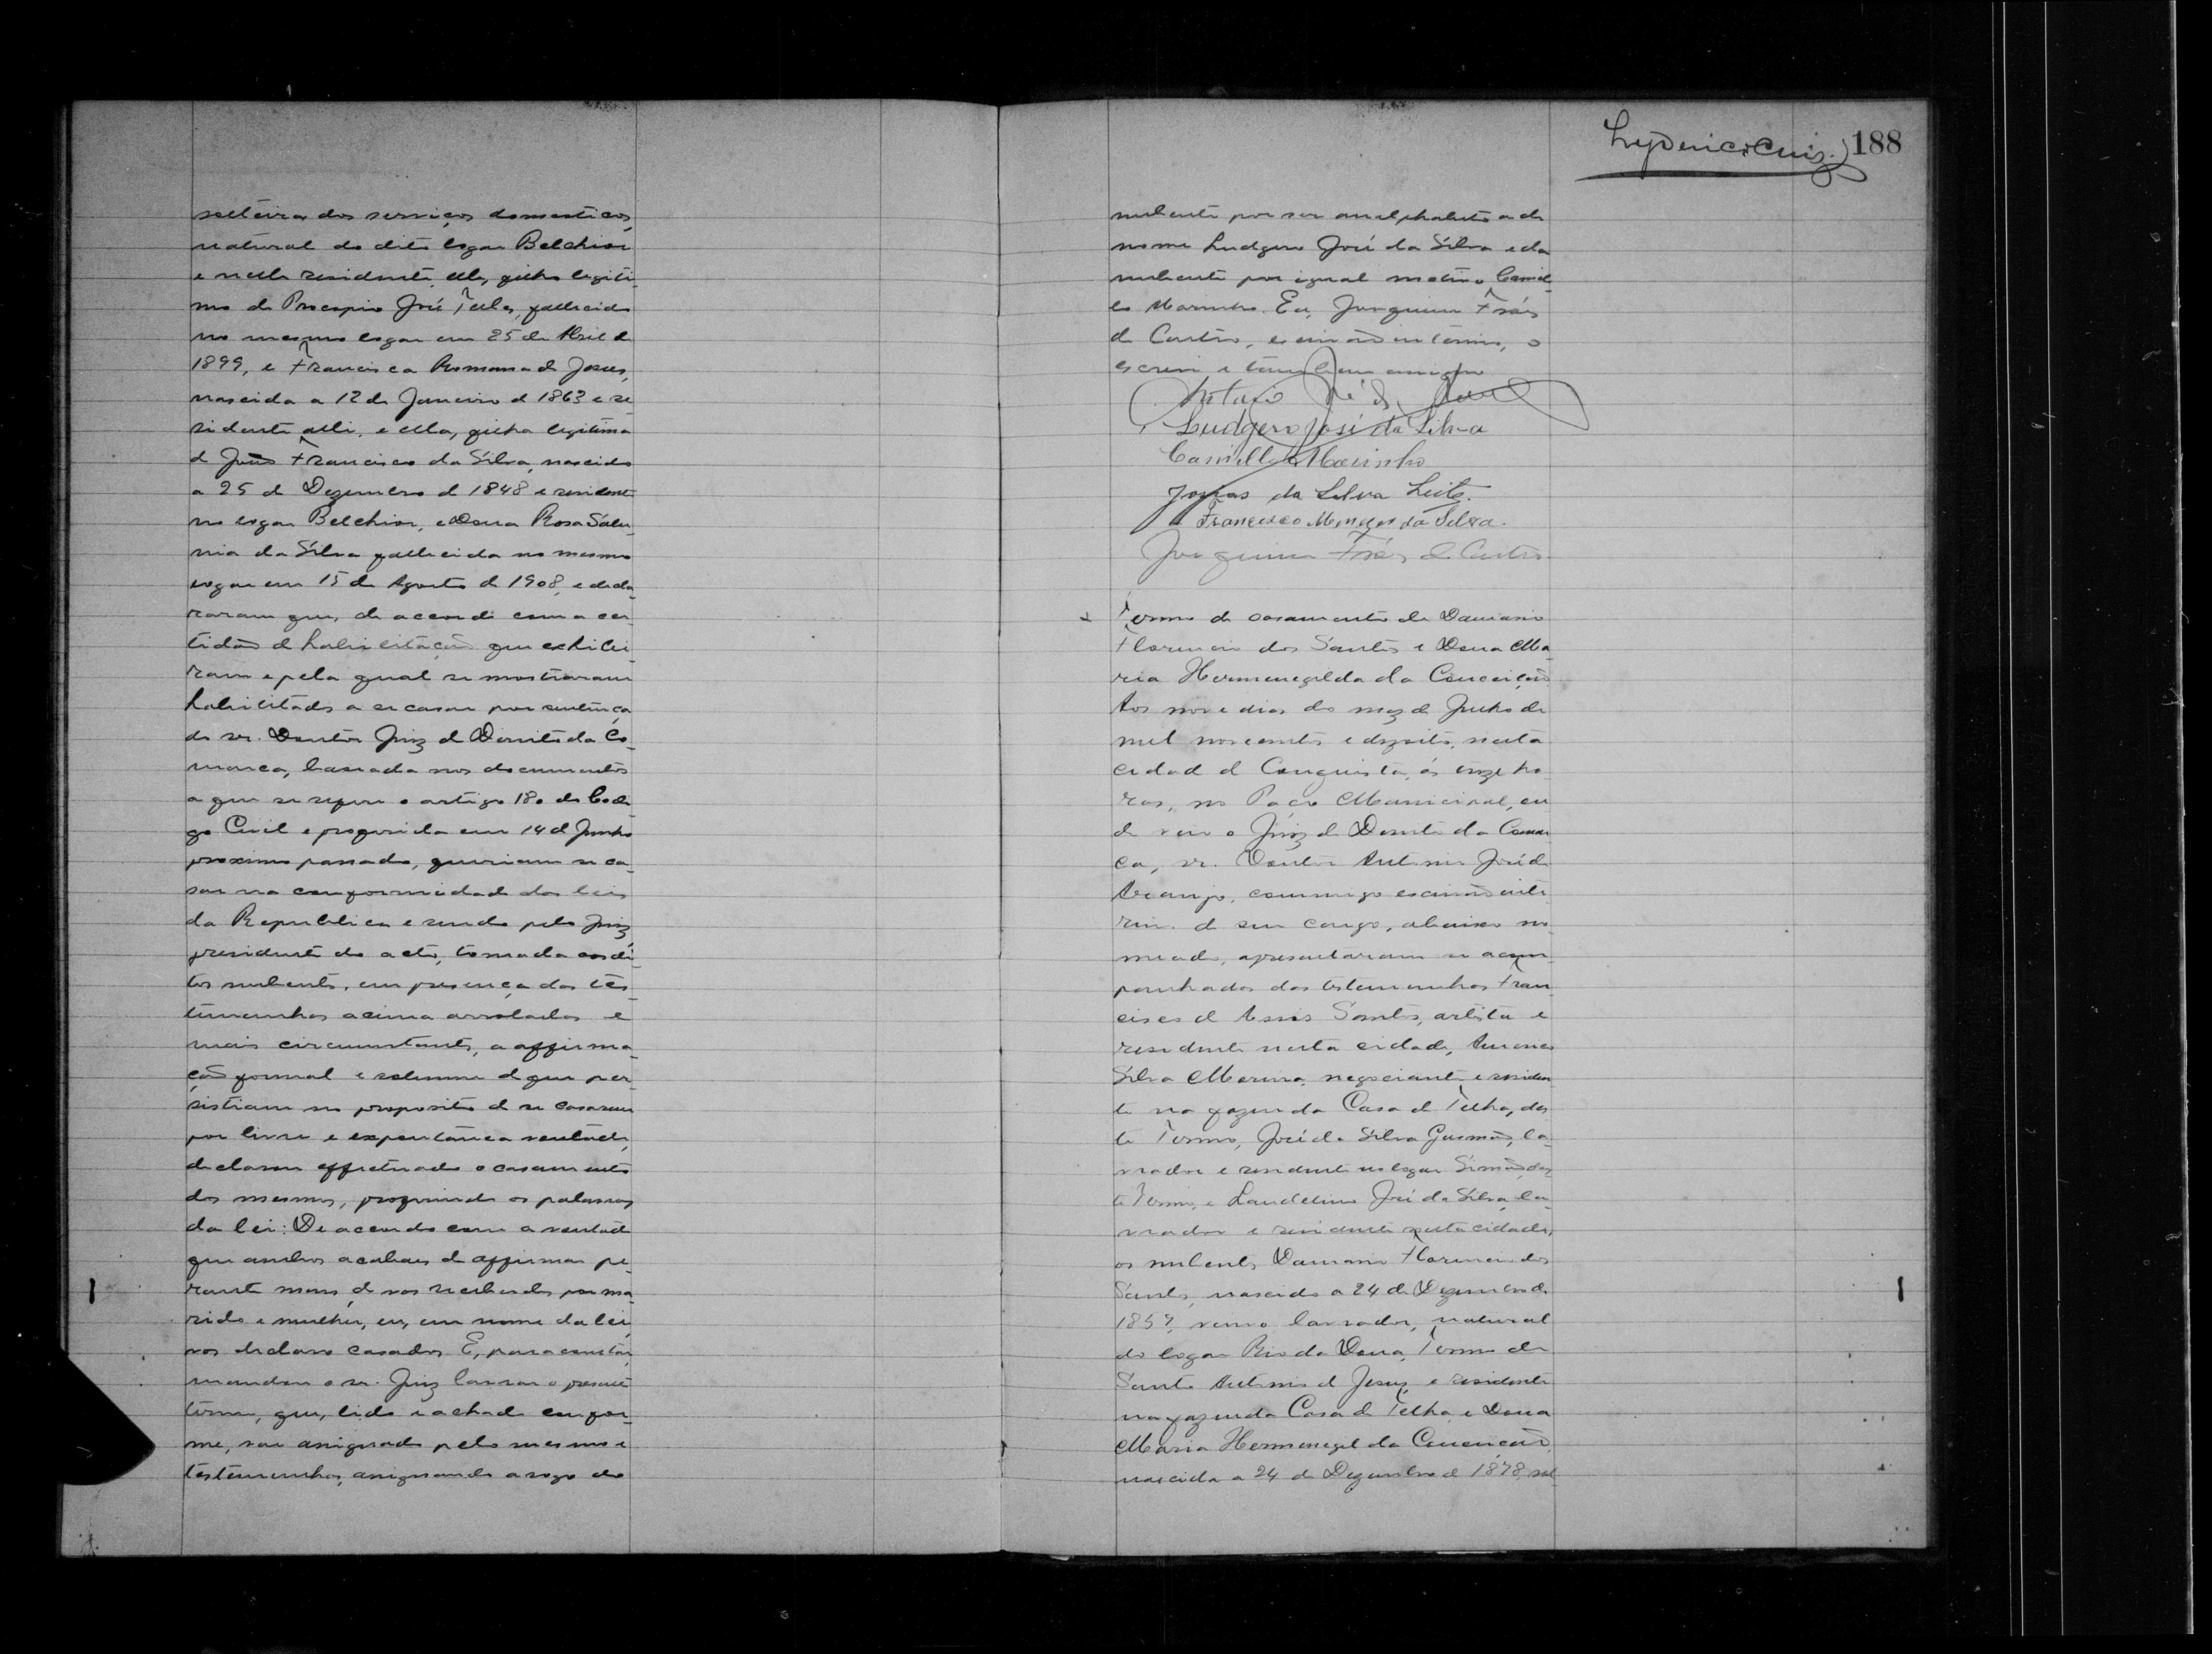 solteira dos serviços domesticos,
natural do dito logar Belchior
e nelle residente, elle, filho legiti-
mo de Procopio José Telles, fallecido
no mesmo logar em 25 de Abril de
1899, e Francisca Romana de Jesus,
nascida a 12 de Janeiro de 1863 e re-
sidente alli, e ella, filha legitima
de João Francisco da Silva, nascido
a 25 de Dezembro de 1848 e residente
no logar Belchior, e Dona Rosa
da Silva fallecida no mesmo
logar em 15 de Agosto de 1908, e decla-
raram que, de accordo com a cer-
tidão de habilitação que exhibi-
ram e pela qual se mostraram
habilitados a se casar por sentença
do sr. Doutor Juiz de Direito da Co-
marca, baseada nos documentos
a que se refere o artigo 180 do Codi-
go Civil e proferida em 14 de Junho
proximo passado, queriam se ca-
sar na conformidade das leis
da Republica e sendo pelo Juiz
presidente do acto, tomada aos di-
tos nubentes, em presença das tes-
temunhas acima arroladas e
mais circumstantes, a affirma-
ção formal e solemne de que per-
sistiam no proposito de se casarem
por livre e expontanea vontade,
declarou effectuado o casamento
dos mesmos, proferindo as palavras
da lei: De accordo com a vontade
que ambos acabaes de affirmar pe-
rante mim, de vos receberdes por ma-
rido e mulher, eu, em nome da lei,
vos declaro casados. E, para constar,
mandou o sr. Juiz lavrar o presente
termo, que, lido e achado confor-
me, vae assignado pelo mesmo e
testemunhas, assignando a rogo do
188
nubente por ser analphabeto e de
nome Ludgero José da Silva e da
nubente por igual motivo Camil-
lo Marinho. Eu, Joaquim Fróes
de Castro, escrivão interino, o
escrevi e tambem assigno
Ludgero José da Silva
Camillo Marinho
Jonas da Silva Leite.
Francisco Menezes da Silva.
Joaquim Fróes de Castro.
Termo de casamento de Damiano
Florencio dos Santos e Dona Ma-
ria Hermenegilda da Conceição.
Aos nove dias do mez de Julho de
mil novecentos e dezoito, nesta
cidade de Conquista, ás onze ho-
ras, no Paço Municipal, on-
de veio o Juiz de Direito da Comar-
ca, sr. Doutor Antonio José de
Araujo, commigo escrivão inte-
rino de seu cargo, abaixo no-
meado, apresentaram se acom-
panhados das testemunhas Fran-
cisco de Assis Santos, artista e
residente nesta cidade,
Silva Moreira, negociante e residen-
te na fazenda Casa de Telha, des-
te Termo, José da Silva Gusmão, la-
vrador e residente no logar Simão, des-
te Termo, e Laudelino José da Silva, la-
vrador e residente nesta cidade,
os nubentes Damiano Florencio dos
Santos, nascido a 24 de Dezembro de
1857, viuvo, lavrador, natural
do logar Rio da Dona, Termo de
Santo Antonio de Jesus, e residente
na fazenda Casa de Telha, e Dona
Maria Hermenegil da Conceição,
nascida a 24 de Dezembro de 1878, sol-